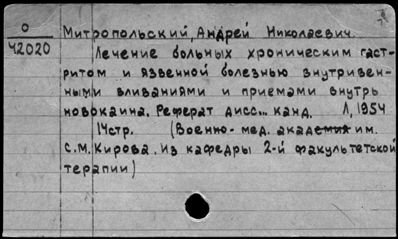 О
42020
Митропольский, Андрей Николаевич.
Лечение больных хроническим гаст-
ритом и язвенной болезнью внутривен-
ными вливаниями и приемами внутрь
новокаина. Реферат дисс... канд. Л, 1954
14стр. (Военно-мед. академия им.
С.М.Кирова. Из кафедры 2-й факультетской
терапии)